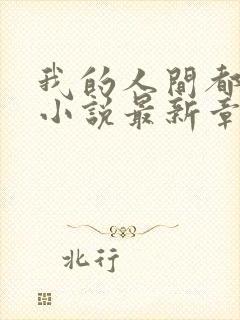 我的人间都
小说最新章
北行